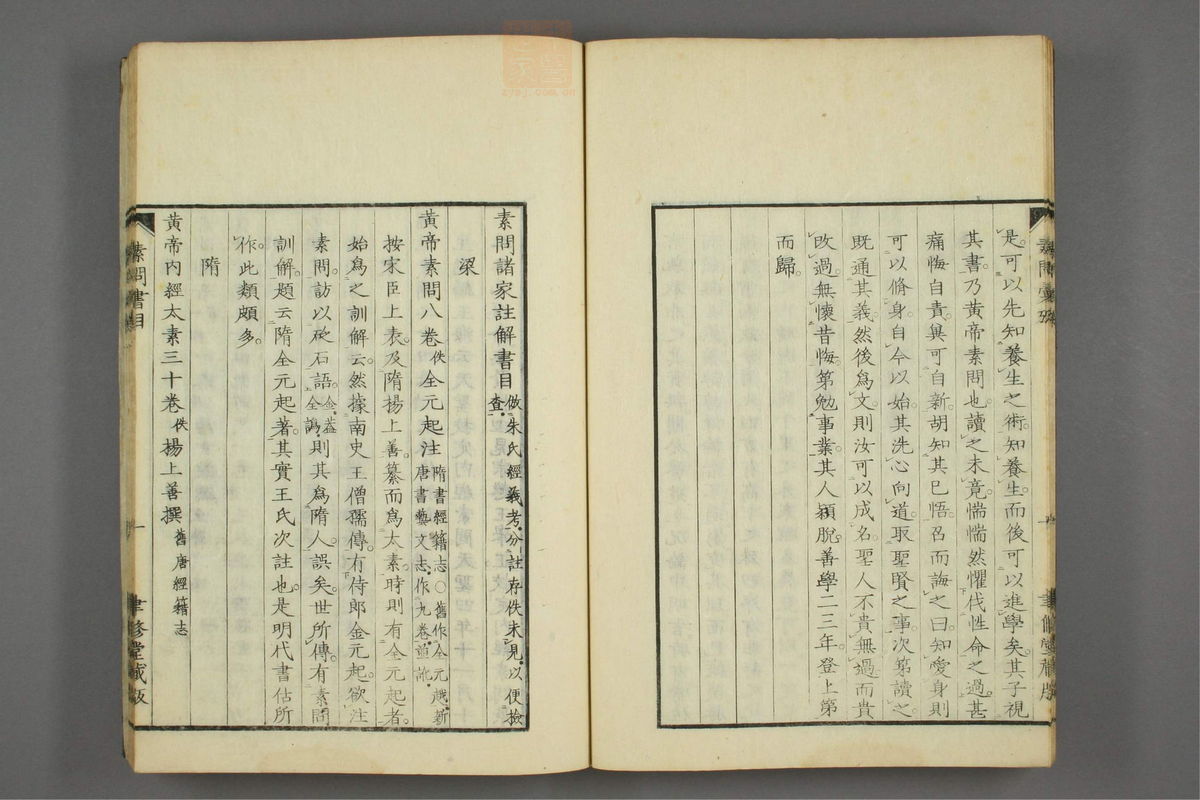 是可以先知養生之術知養生而後可以進學矣其子視
其書乃黃帝素問也讀之未竟惴惴然懼伐性命之過甚
痛悔自責冀可自新胡知其已悟召而誨之曰知愛身則
可以脩身自今以始其洗心向道取聖賢之事次第讀之
既通其義然後爲文則汝可以成名聖人不貴無過而貴
改過無懷昔悔第勉事業其人穎脫善學二三年登上第
而歸
素問諸家註解書目倣朱氏經義考分註存佚未見以便檢
查
梁
黃帝素問八卷佚全元起注隋書經籍志○舊作全元越新
唐書藝文志作九卷並訛
按宋臣上表及隋揚上善纂而爲太素時則有全元起者
始爲之訓解云然據南史王僧孺傳有侍郎金元起欲注
素問訪以砭石語金蓋
全譌則其爲隋人誤矣世所傳有素問
訓解題云隋全元起著其實王氏次註也是明代書估所
作此類頗多
隋
黃帝內經太素三十卷佚揚上善撰舊唐經籍志
素問書目
一
聿修堂藏版